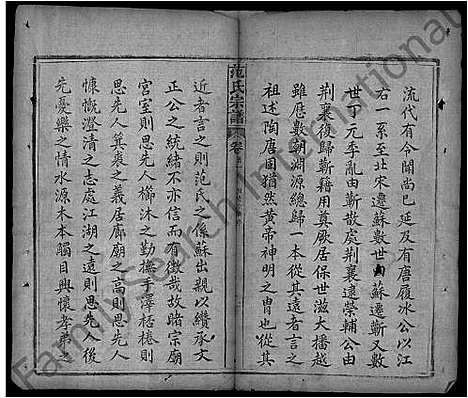 流代有令聞尚已延及有唐履冰公以江
右一系至北宋遷蘇數世由蘇遷蘄又數
世丁元季亂由蘄散處荆襄遠榮輔公由
荆襄復歸蘄籍用奠厥居保世滋大播越
雖應數朝淵源總歸一本從其遠者言之
祖述陶唐固猶然黄帝神明之胄也從其
范氏宗譜 卷
近者言之則范氏之係蘇出親以纘承文
正公之統緒不亦信而有徵哉故睹宗廟
宮室則思先人櫛沐之勤撫手澤桮棬則
思先人箕裘之義居廊廟之高則思先人
慷慨澄清之志處江湖之遠則思先人後
先憂樂之情水源木本觸目興懷孝弟之
FamilySearch International